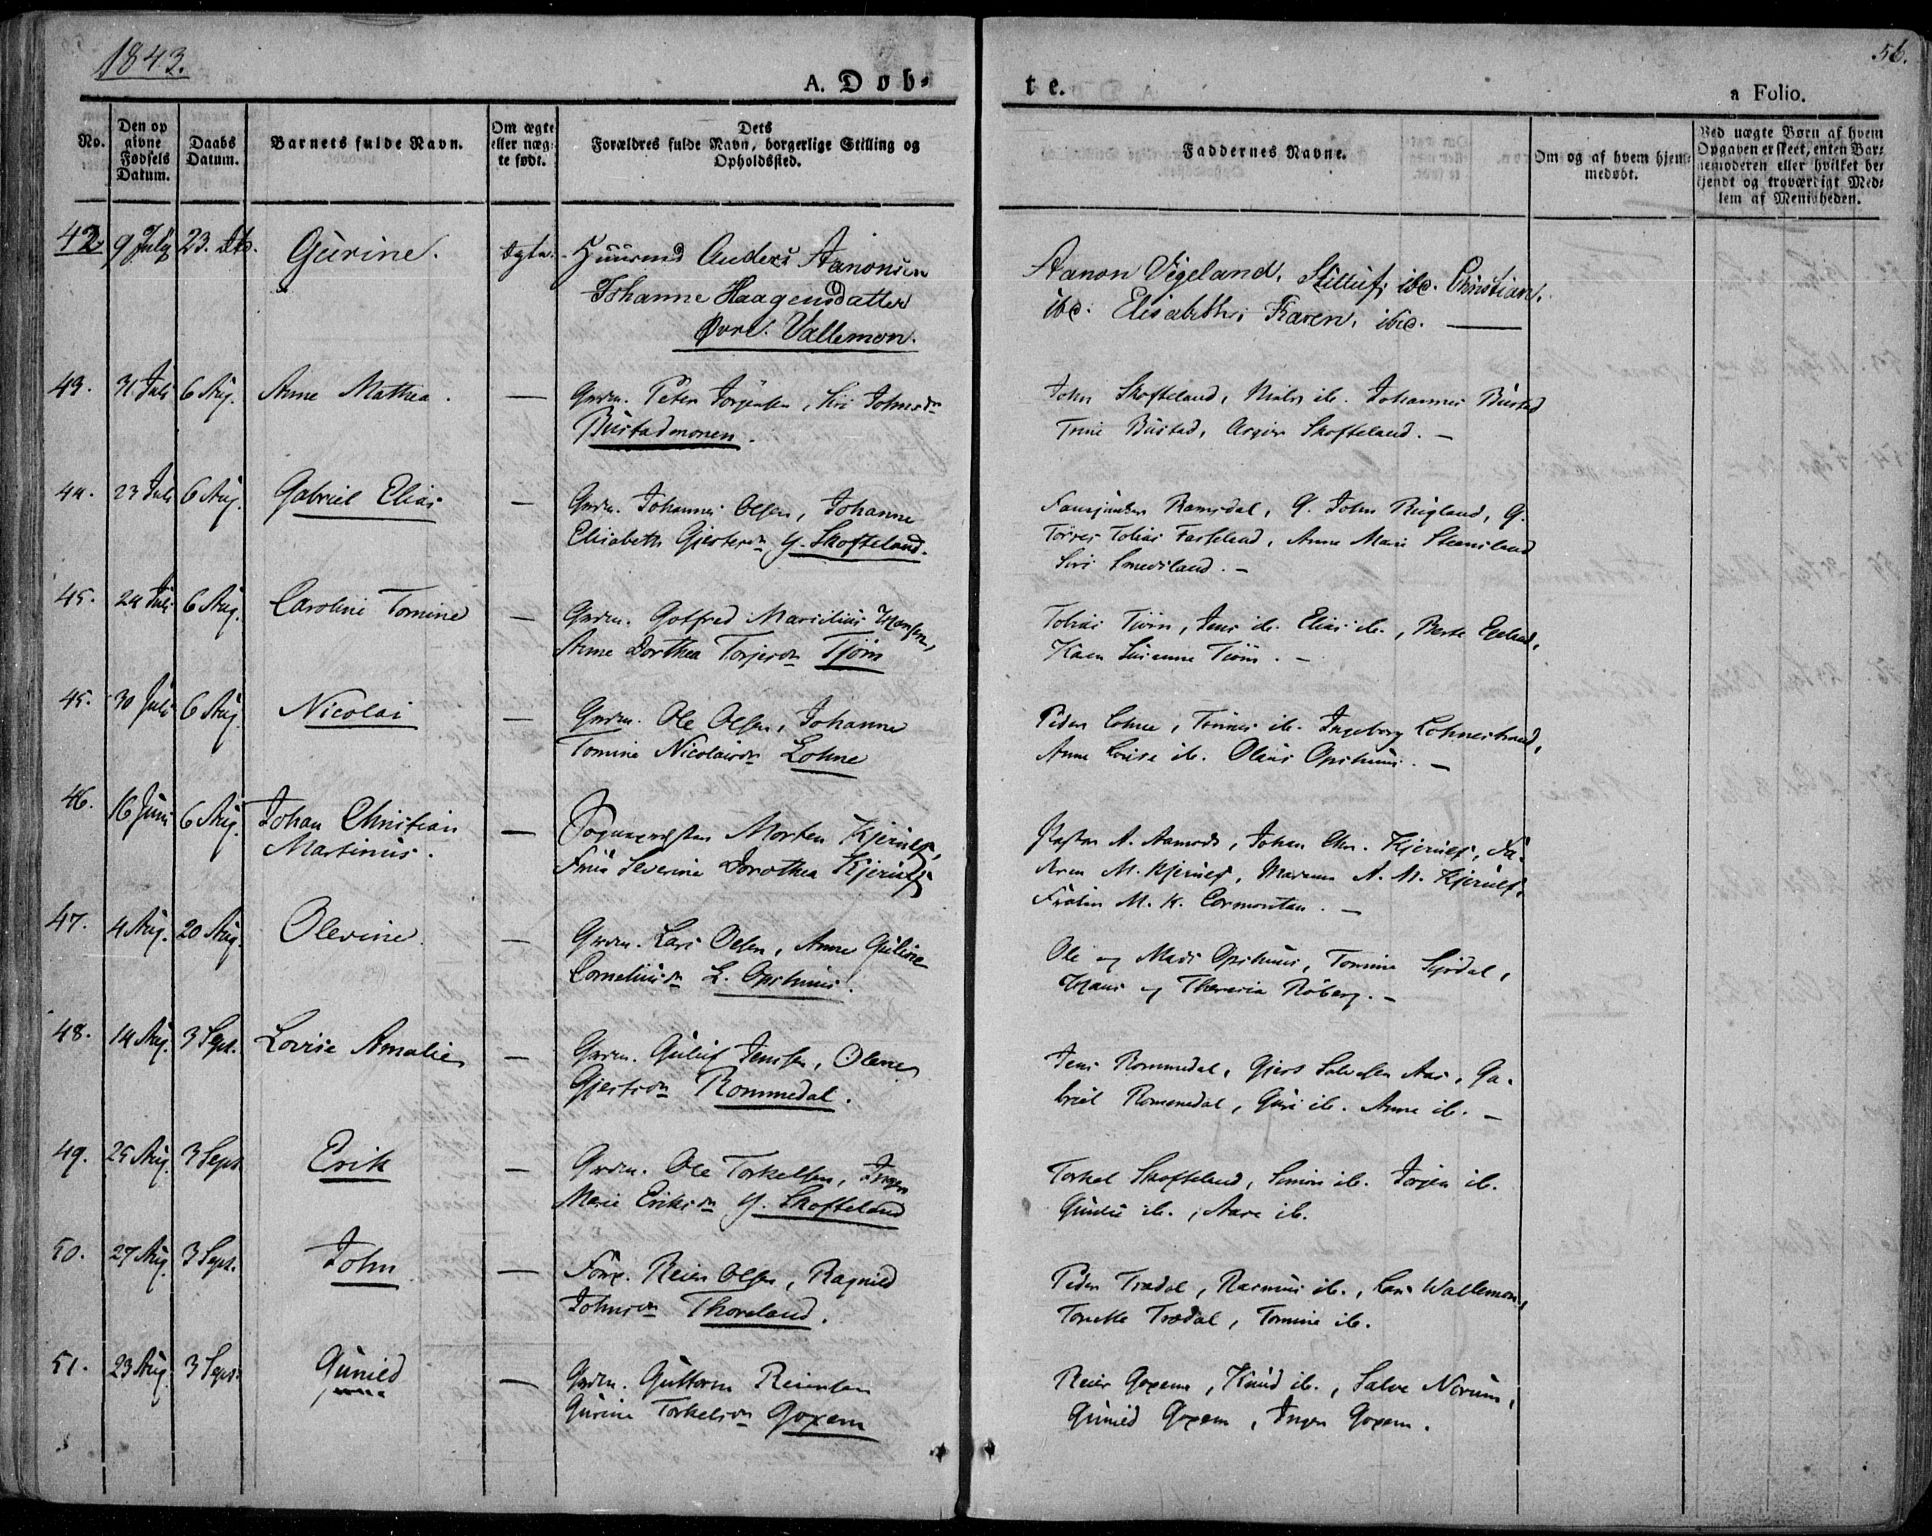 1843.
56.
A. Døb-
te.
a Folio.
No.
Den op
givne
Fødsels
Datum.
Daabs
Datum.
Barnets fulde Navn.
Om ægte
eller uæg-
te født.
Dets
Forældres fulde Navn, borgerlige Stilling og
Opholdssted.
Faddernes Navne.
Om og af hvem hjem-
medøbt.
Ved uægte Børn af hvem
Opgaven er skeet, enten Bar-
nemoderen eller hvilket be-
kjendt og troværdigt Med-
lem af Menigheden.
42. 9 July 23. Do. Gurine. Ægte. Huusmd Anders Aanonsen
Johanne Haagensdatter
Øvre. Vallemon.
Aanon Vigeland, ibd. Christian,
ibd. Elisabeth, Karen, ibd. —
43. 31 Juli 6 Aug. Anne Mathea. — Grdm. Peter Jörgensen, Siri Johnsdr
Bustadmonen.
John Skofteland, Niels ib. Johannes Bustad
Trine Bustad, Asgjer Skofteland. —
44. 23 Juli 6 Aug. Gabriel Elias — Grdm. Johannes Olsen, Johanne
Elisabeth Gjertsdr Y. Skofteland.
Ramsdal, G. John Rugland, G.
Tørres Tobias Faseland, Anne Marie Steensland
Siri Smedsland. —
45. 24 Juli 6 Aug. Caroline Tomine — Grdm. Gotfred Marselius Hansen,
Anne Dorthea Torjersdr Tjöm
Tobias Tjöm, Jens ib. Elias ib., Berte Egeland,
Karen Susanne Tjöm. —
45. 30 Juli 6 Aug. Nicolai — Grdm. Ole Olsen, Johanne
Tomine Nicolaisdr Lohne
Peder Lohne, Tönnes ib. Ingeborg Lohnestrand,
Anne Loise ib. Olaus Opshuus. —
46. 16 Juni 6 Aug. Johan Christian
Martinus. — Sognepresten Morten Kjerulf,
Fruе Severine Dorothea Kjerulf
Pastor A. Aamodt, Johan Chr. Kjerulf, Fa-
M. Kjerulf, A. M. Kjerulf,
Frøken M. K. Cormontan. —
47. 4 Aug. 20 Aug. Olevine. — Grdm. Lars Olsen, Anne Guline
Corneliusdr L. Opshuus.
Ole og Mads Opshuus, Tomine Sejdal,
Hans og Theresia Roberg. —
48. 14 Aug. 3 Sept. Lovise Amalie — Grdm. Guluf Jenssen, Olene
Gjertsdr Rommedal.
Jens Rommedal, Gjert Salvesen Aas, Ga-
briel Rommedal, Guri ib. Anne ib. —
49. 25 Aug. 3 Sept Erik — Grdm. Ole Torkelsen, Inger
Marie Eriksdr Y. Skofteland
Torkel Skofteland, Simon ib. Jörgen ib.
Gunde ib., Aase ib.
50. 27 Aug. 3 Sept. John — Reier Olsen, Ragnild
Johnsdr Thoreland.
Peder Trædal, Rasmus ib., Lars Wallemon,
Tonette Trædal, Tomine ib.
51. 23 Aug. 3 Sept. Gunild — Grdm. Guttorm Reiersen
Gurine Torkelsdr Goxem
Reier Goxem, Knud ib., Salve Norum,
Gunild Goxem, Inger Goxem.